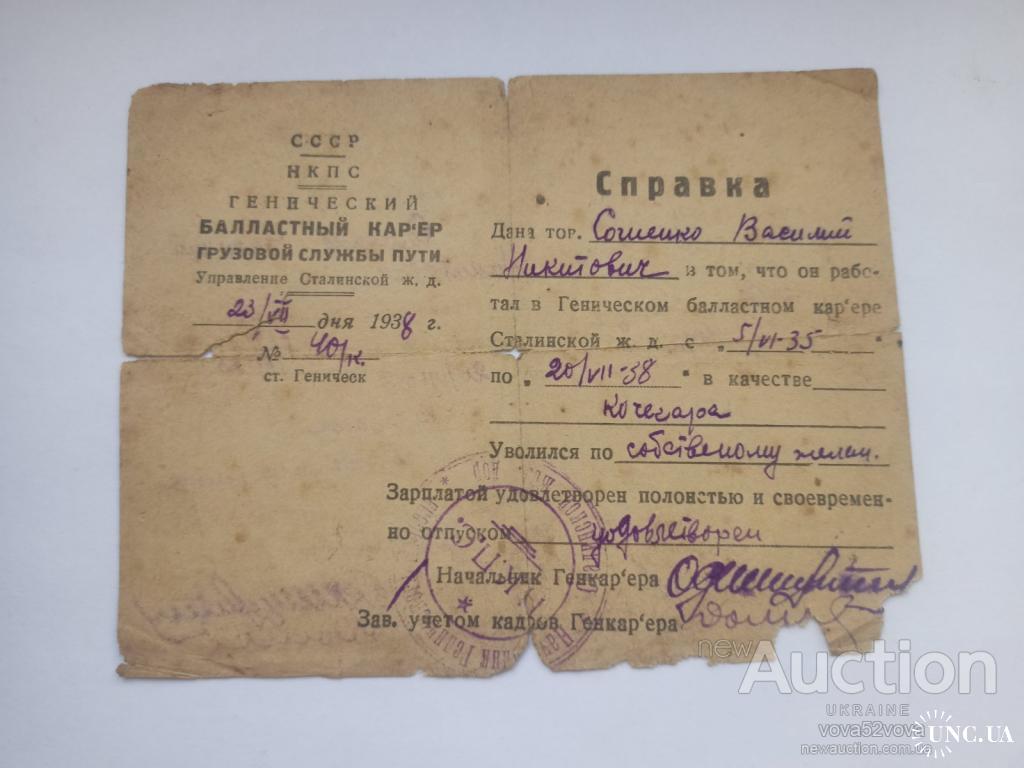 СССР
НКПС
ГЕНИЧЕСКИЙ
БАЛЛАСТНЫЙ КАР'ЕР
ГРУЗОВОЙ СЛУЖБЫ ПУТИ
Управление Сталинской ж. д.
23/VII дня 1938 г.
№ 40/к.
ст. Геническ
Справка
Дана тов. Василий
Никитович в том, что он рабо-
тал в Геническом балластном кар'ере
Сталинской ж. д. с „5/VI-35"
по „20/VII-38" в качестве
кочегара
Уволился по собственому желан.
Зарплатой удовлетворен полностью и своевремен-
но отпуском удовлетворен
Начальник Генкар'ера
Зав. учетом кадров Генкар'ера
Н.К.П.С.
newAuction
UKRAINE
vova52vova
newauction.com.ua
UNC.UA